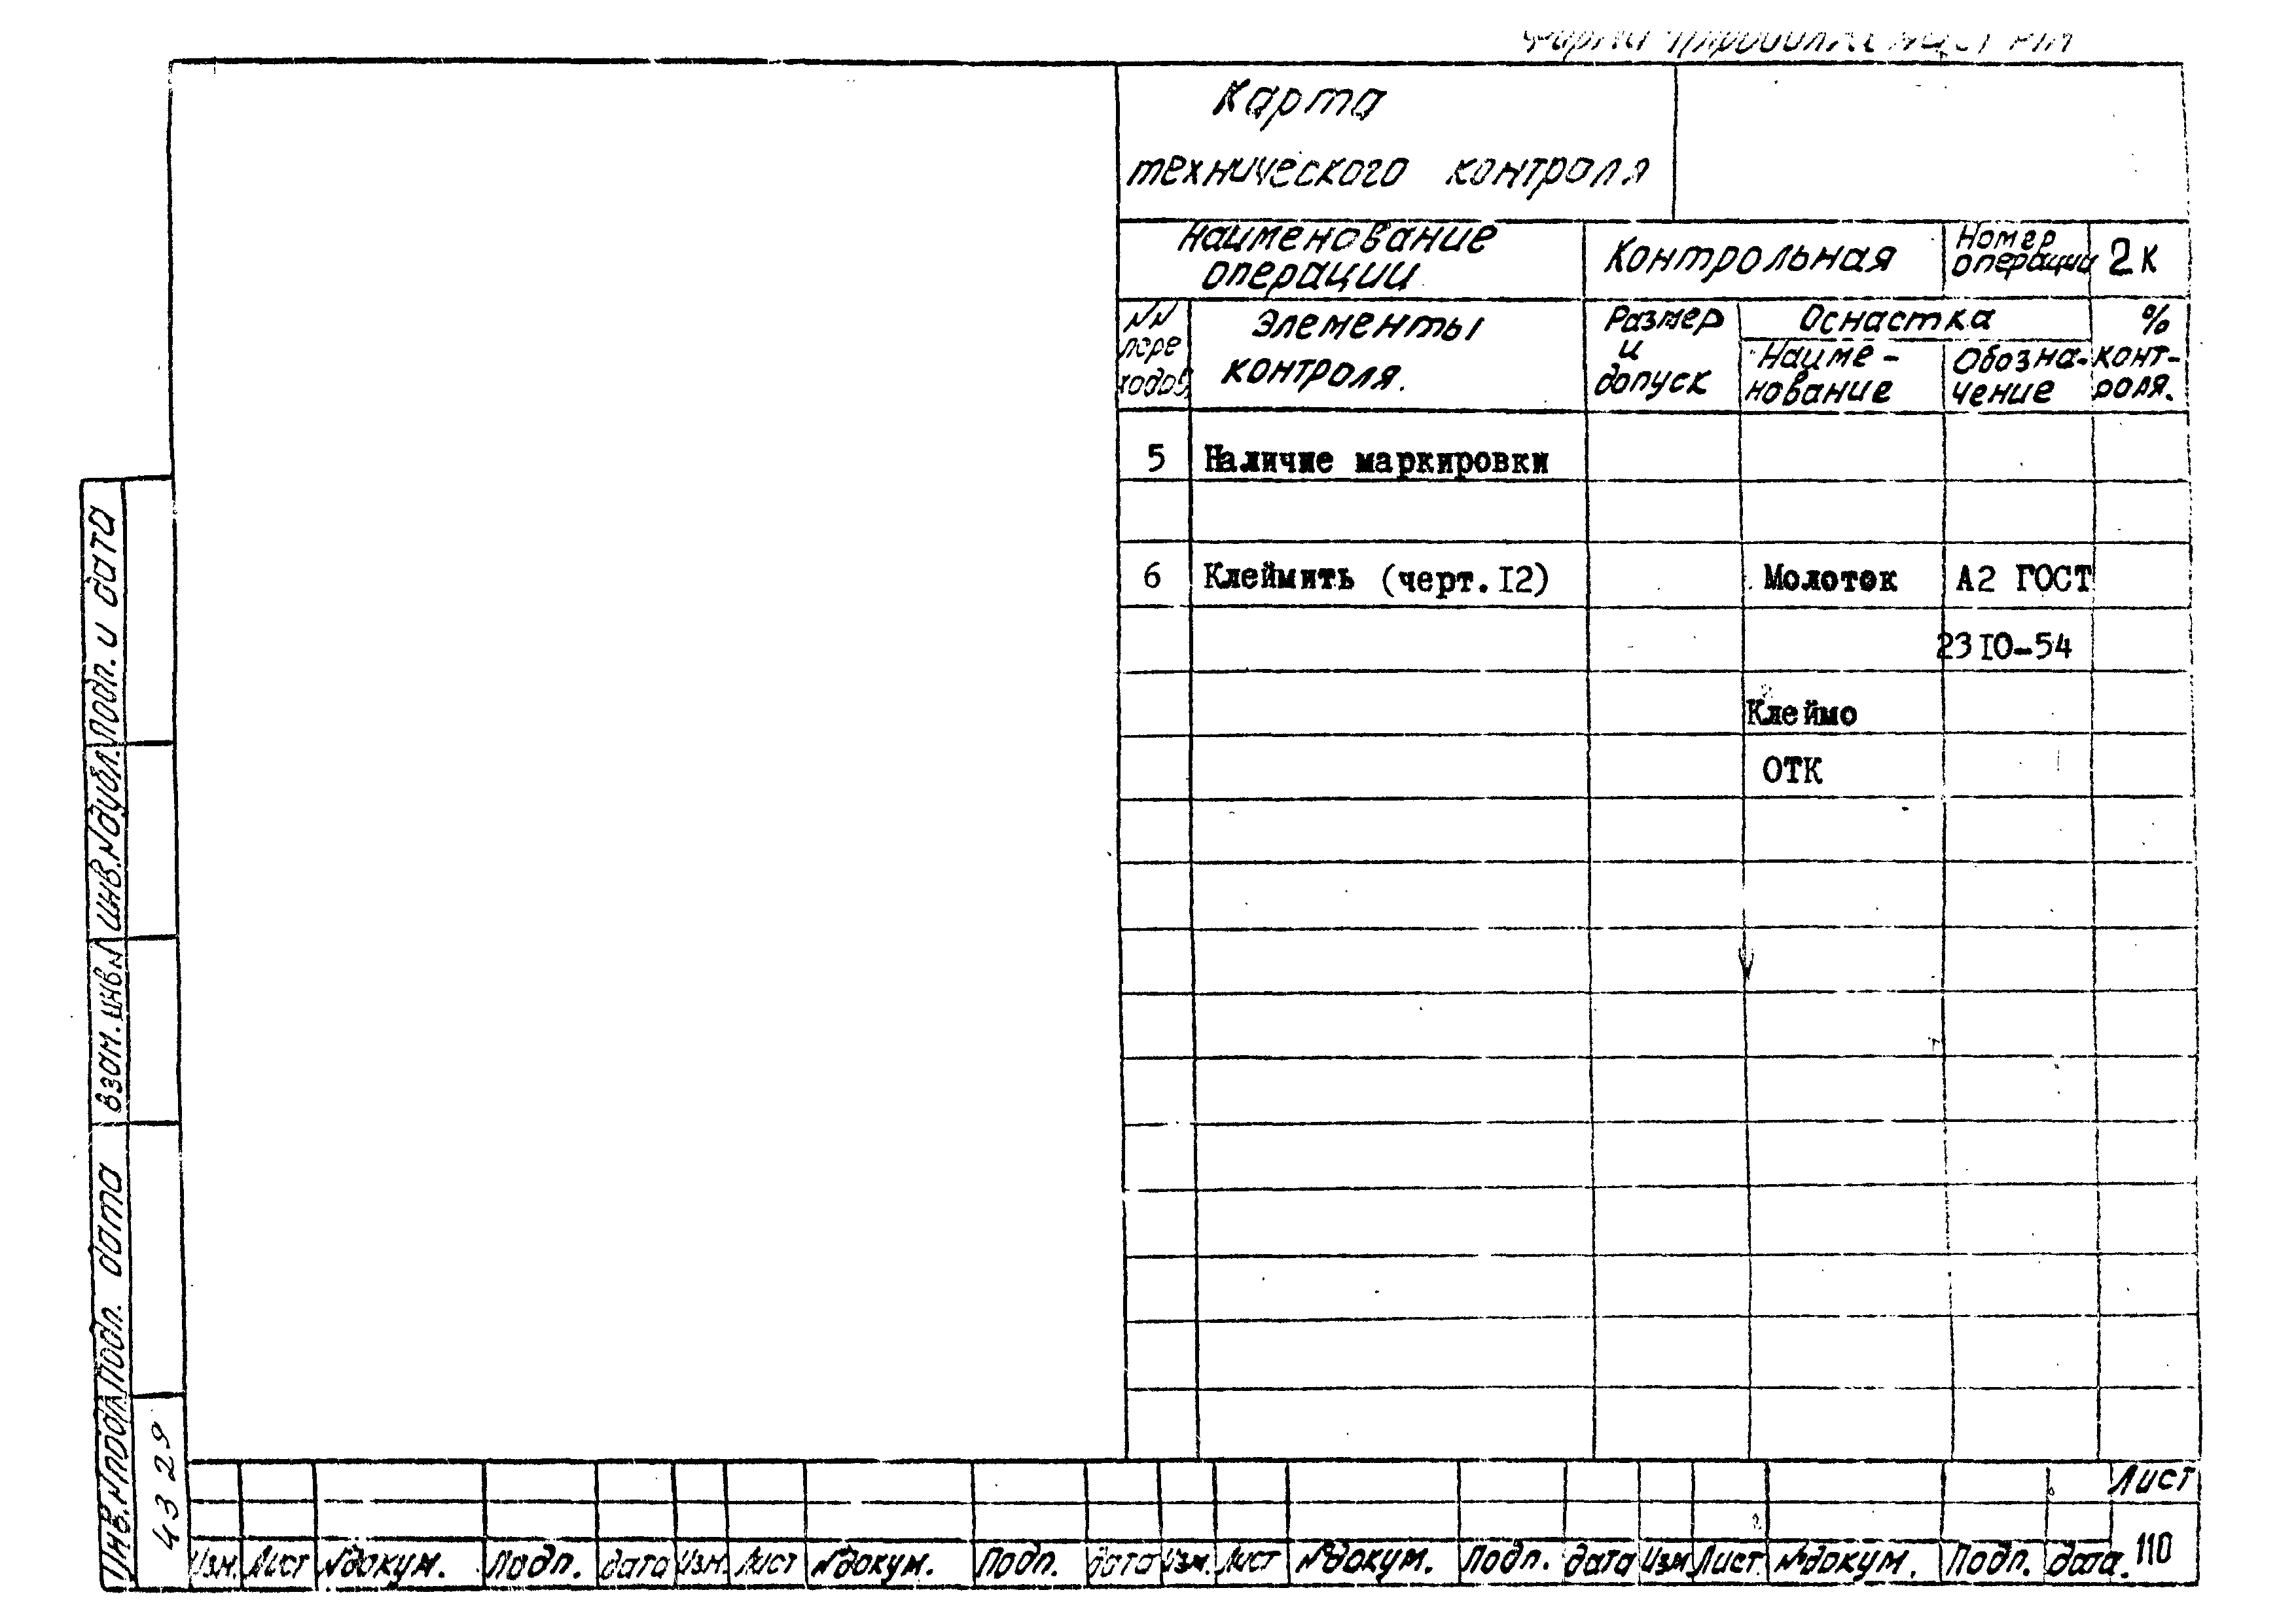 Карта
технического контроля
Наименование операции
Контрольная
Номер операции
2К
NN пере ходов
Элементы контроля.
Размер и допуск
Оснастка
Наиме-
нование
Обозна-
чение
% конт-
роля.
5 Наличие маркировки
6 Клеймить (черт.I2) Молоток А2 ГОСТ
23I0-54
Клеймо
ОТК
Подп. и дата
Инв.N дубл.
Взам. инв.N
Подп. дата
Инв.N подл
4329
Лист
Изм. Лист №докум. Подп. дата Изм. Лист №докум. Подп. дата Изм. Лист №докум. Подп. дата Изм Лист №докум. Подп. дата. 110